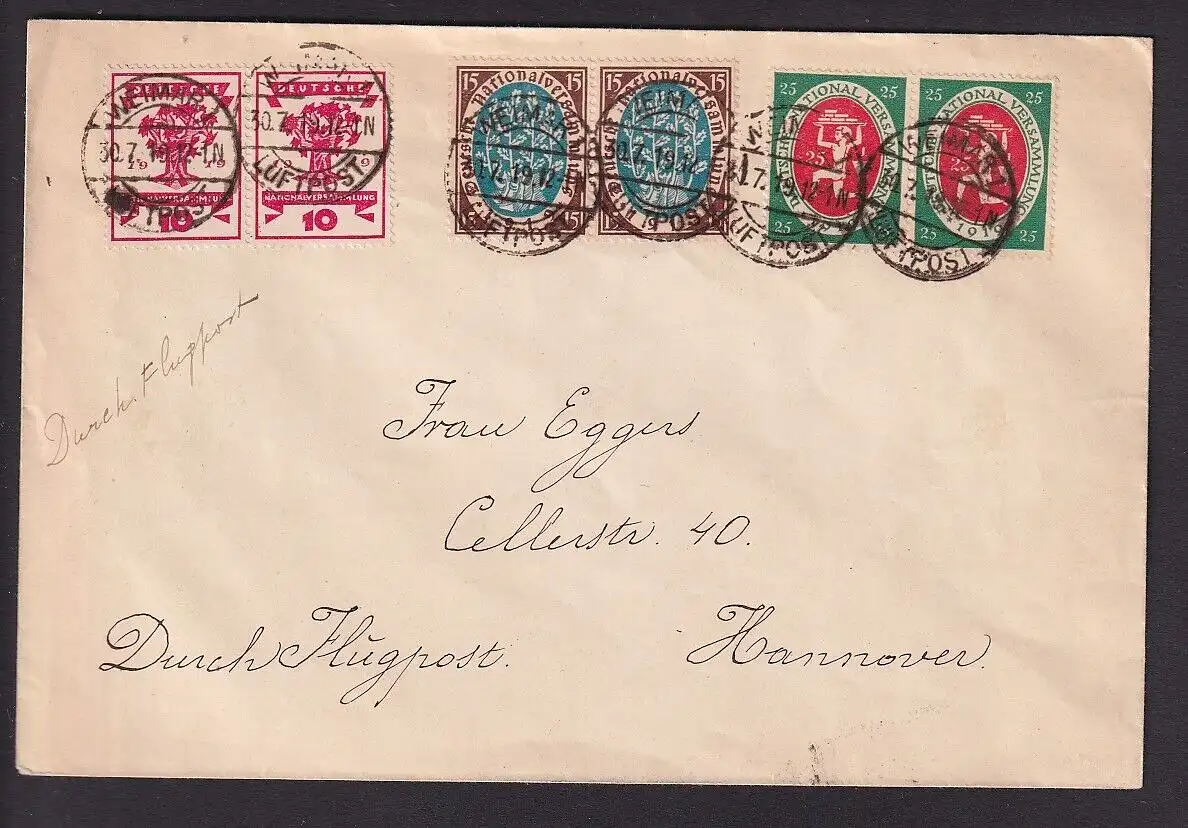 DEUTSCHE
1919
NATIONALVERSAMMLUNG
10
DEUTSCHE
1919
NATIONALVERSAMMLUNG
10
15 15
Deutsche Nationalversammlung
1919
15
15 15
Deutsche Nationalversammlung
1919
15
25 25
DEUTSCHE NATIONAL VERSAMMLUNG
25
1919
25 25
25 25
DEUTSCHE NATIONAL VERSAMMLUNG
25
1919
25 25
WEIMAR
30.7.19.12-1N
LUFTPOST
WEIMAR
30.7.19.12-1N
LUFTPOST
WEIMAR
.7.19.12-
LUFTPOST
WEIMAR
30.7.19.12
POST
30.7.19.12-1N
LUFTPOST
WEIMAR
LUFTPOST
Durch Flugpost
Frau Eggers
Cellerstr. 40.
Durch Flugpost.
Hannover.